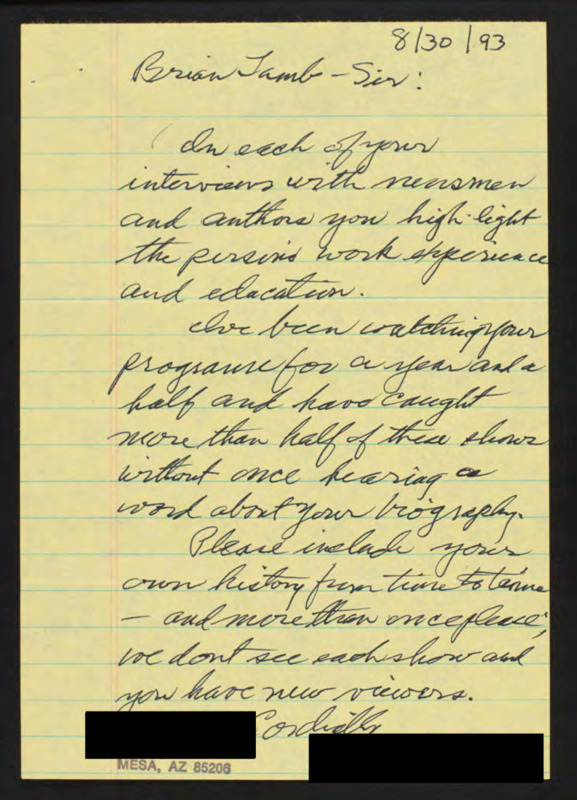 8/30/93
Brian Lamb – Sir:
In each of your
interviews with newsmen
and authors you high-light
the person's work experience
and education.
I've been watching your
programe for a year and a
half and have caught
more than half of these shows
without once hearing a
word about your biography.
Please include your
own history from time to time
– and more than once please;
we dont see each show and
you have new viewers.
Cordially
MESA, AZ 85206